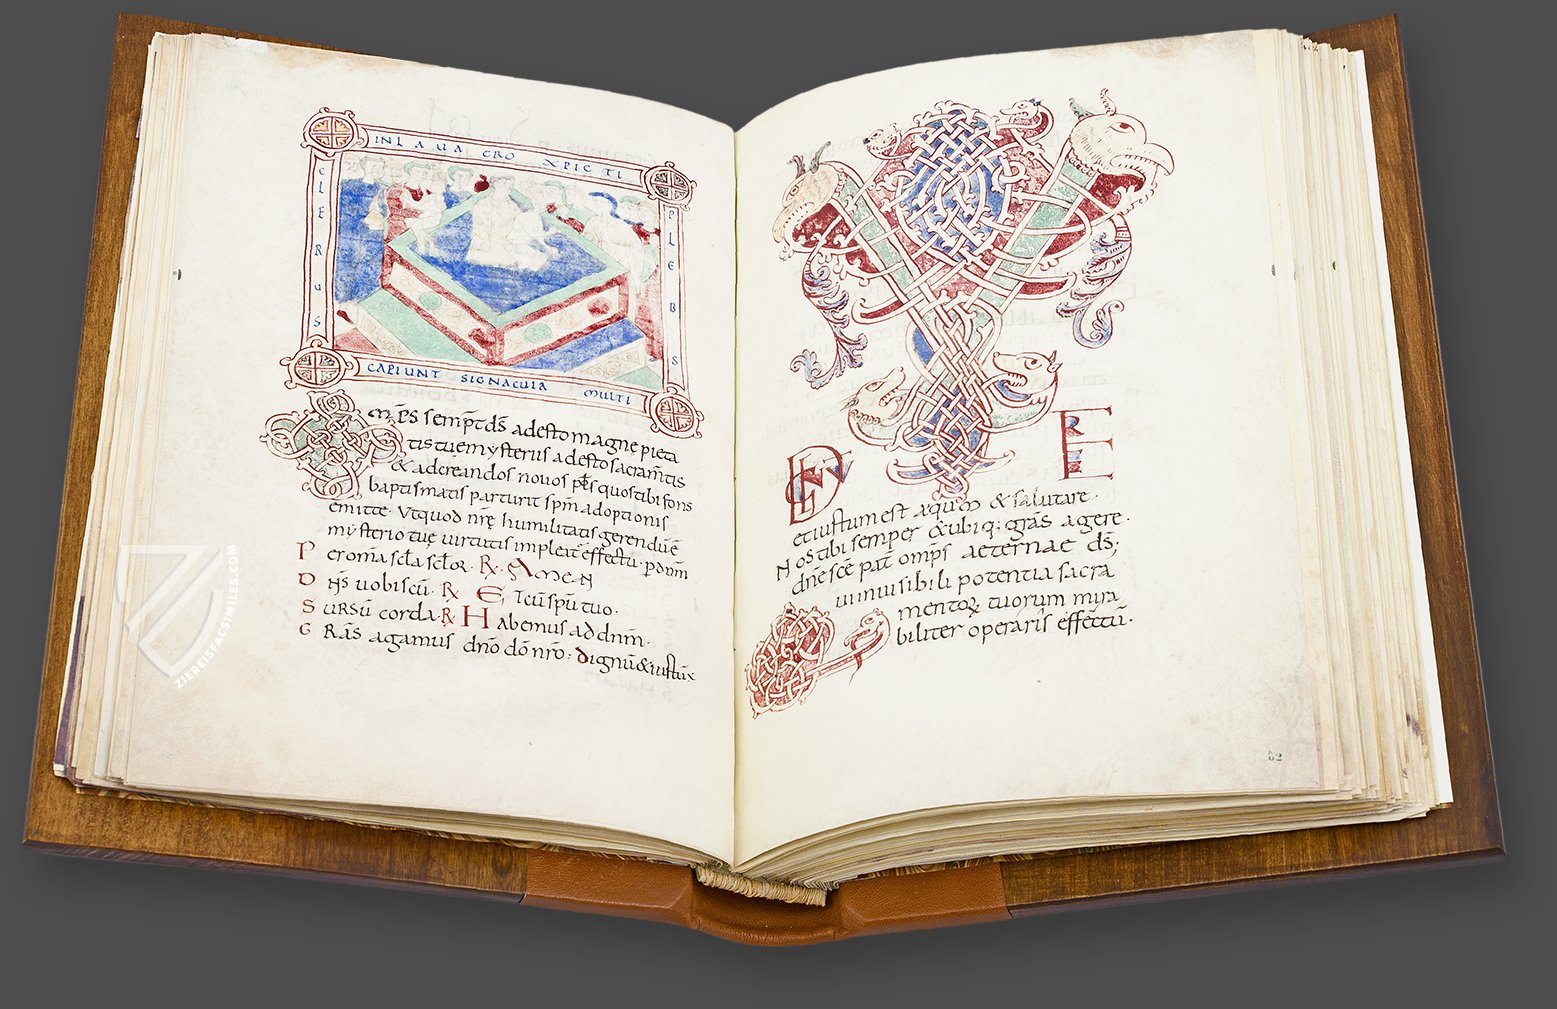 IN LAVACRO XPIC TI
CLERUS
PLEBS
CAPIUNT SIGNACULA MULTI
Omps sempt ds adesto magnę pieta
tis tuę mysteriis adesto sacramtis
& ad creandos novos pls quos tibi fons
baptismatis parturit spm adoptionis
emitte. Ut quod nrę humilitatis gerendu ē
mysterio tuę virtutis impleat effectu. p dnm
Per omia scla sclor. R. Amen
Dns vobiscu. R. Et cu spu tuo.
Sursu corda. R. Habemus ad dnm.
Gras agamus dno do nro. Dignu & iustu
VERE
et iustum est aequm & salutare.
Nos tibi semper & ubiq; gras agere.
dne sce pat omps aeterne ds;
Qui invisibili potentia sacra
mentoꝝ tuorum mira
biliter operaris effectu.
62
ZIEREISFACSIMILES.COM